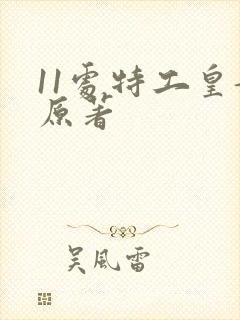 11處特工皇
原著
吴風雷